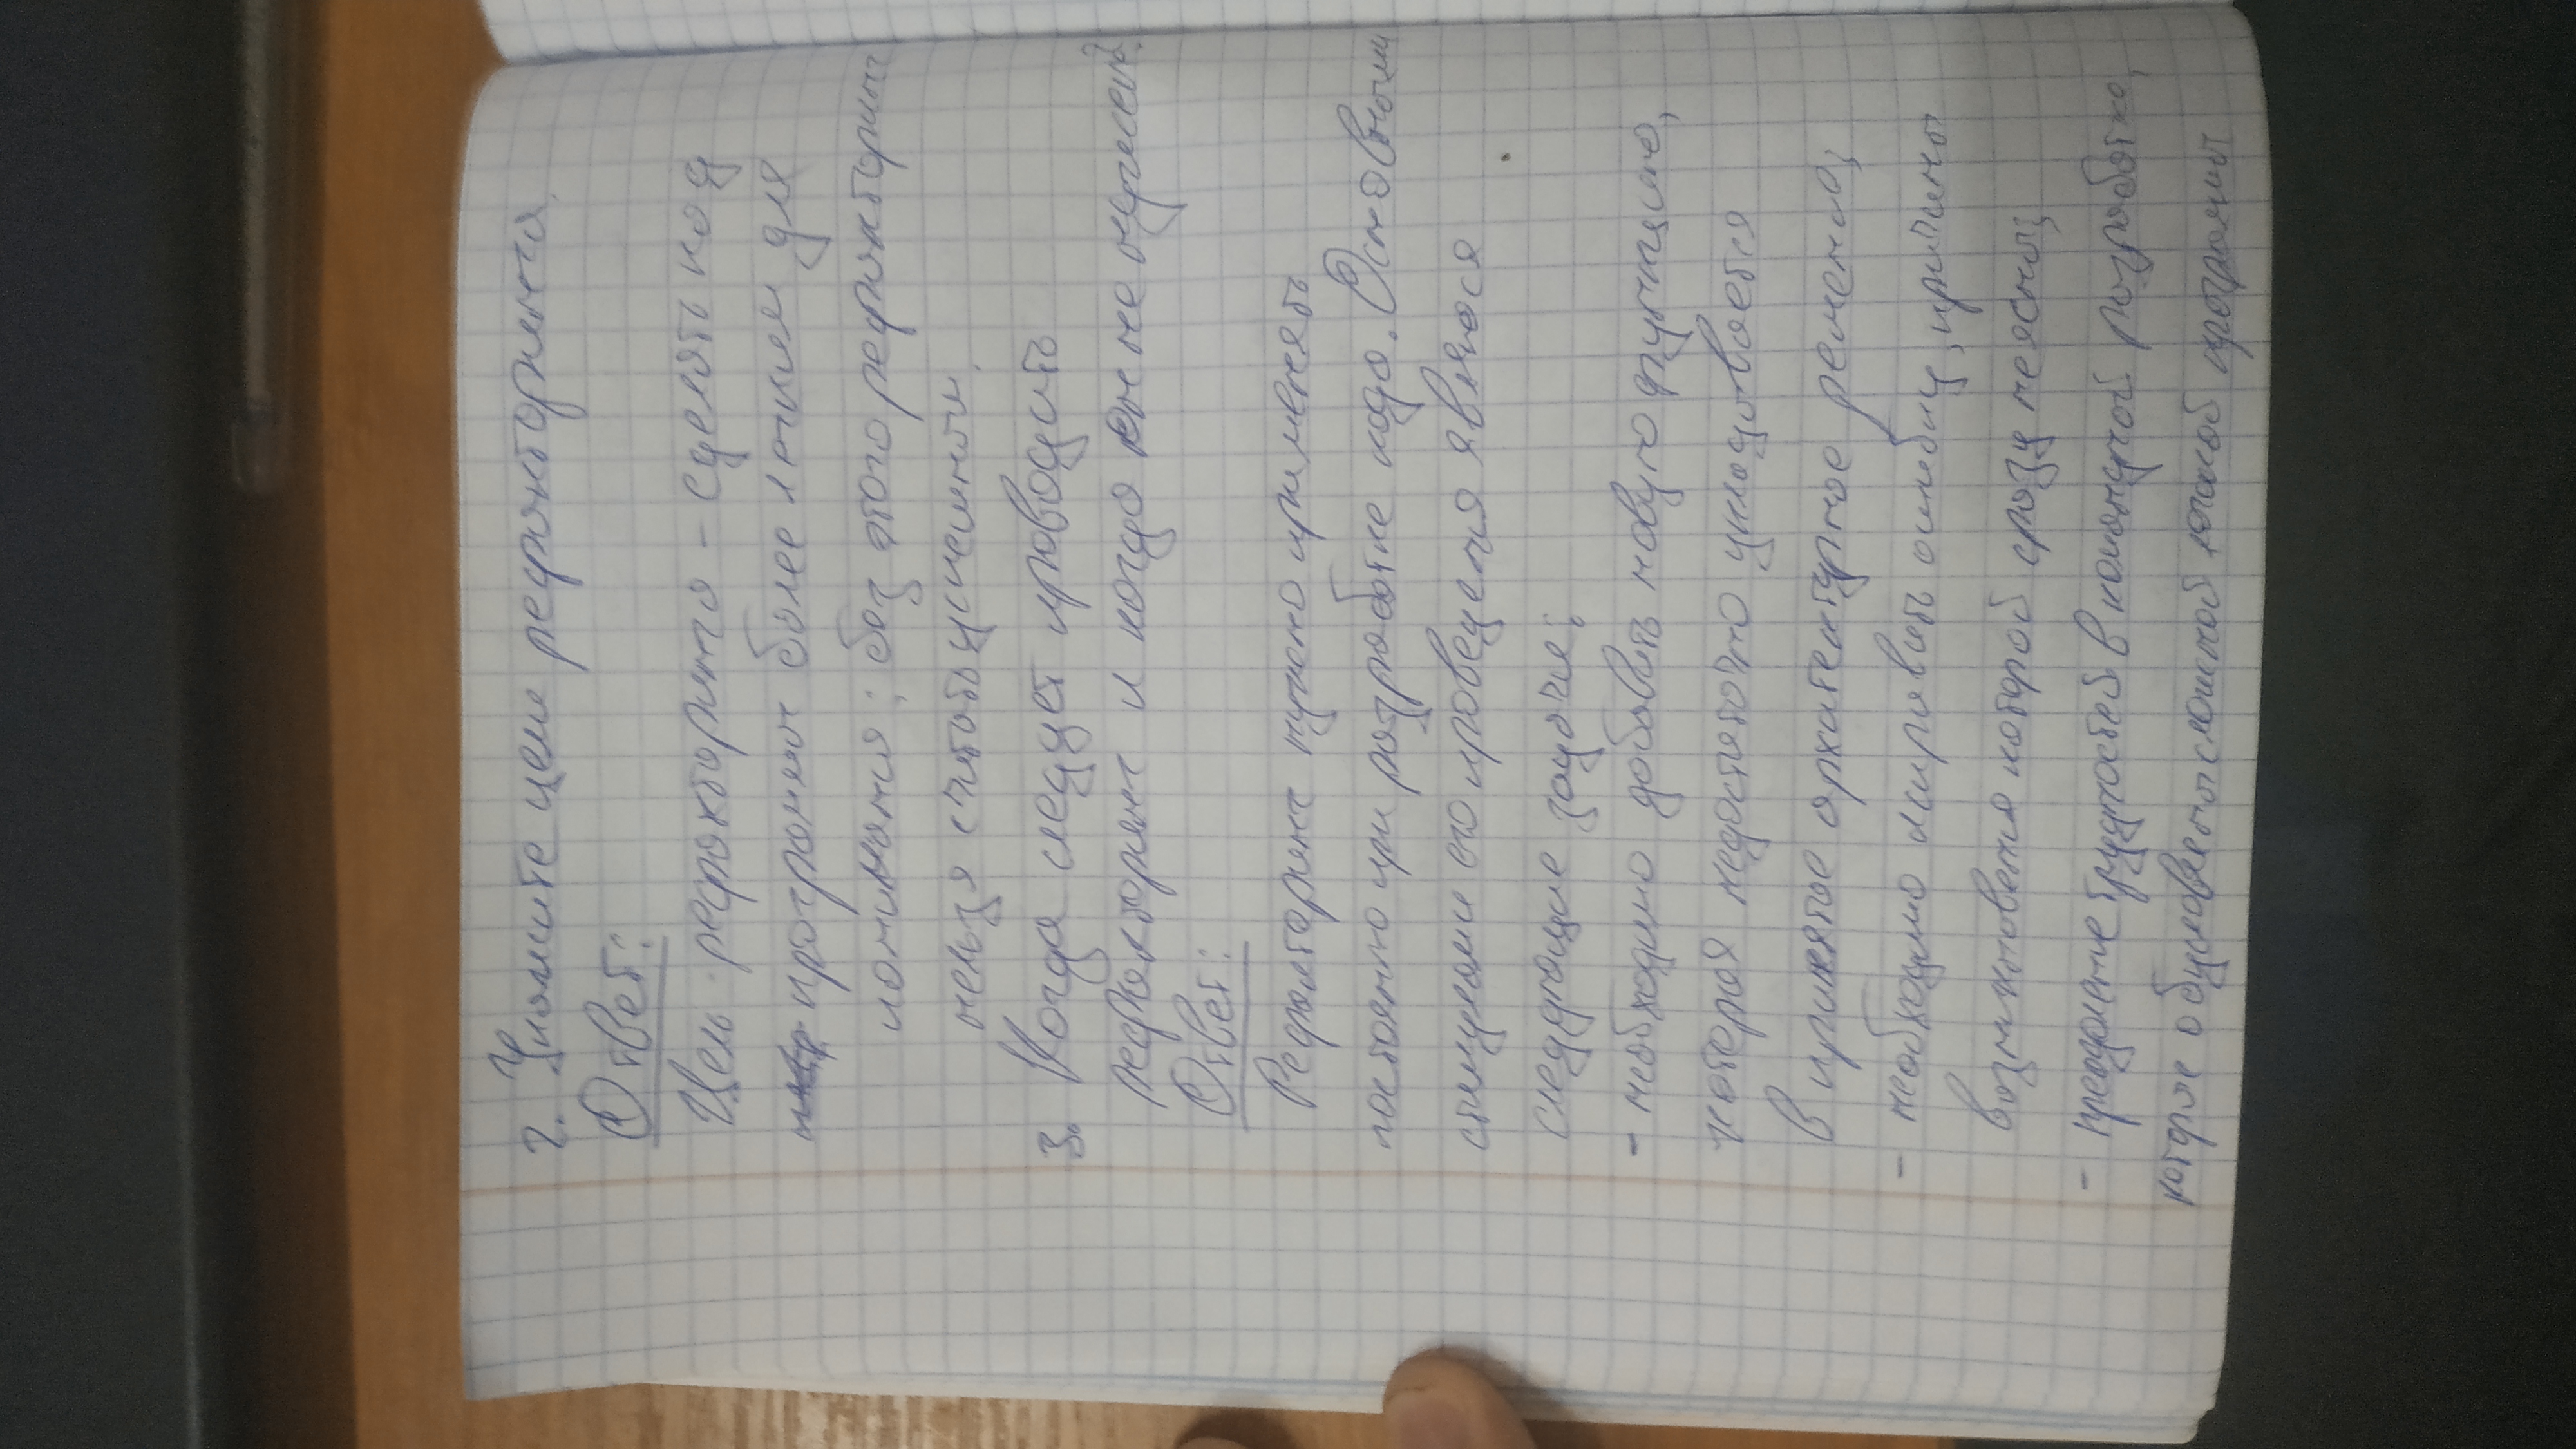 2. Укажите цели рефакторинга.
Ответ:
Цель рефакторинга - сделать код
программы более легким для
понимания; без этого рефакторинг
нельзя считать успешным.
3. Когда следует проводить
рефакторинг и когда он не нужен?
Ответ:
Рефакторинг нужно применять
постоянно при разработке кода. Основными
стимулами его проведения являюся
следующие задачи:
- необходимо добавить новую функцию,
которая недостаточно укладывается
в принятое архитектурное решение;
- необходимо исправить ошибку, причины
возникновения которой сразу не ясны;
- преодоление трудностей в командной разработке,
которые обусловлены сложной логикой программы